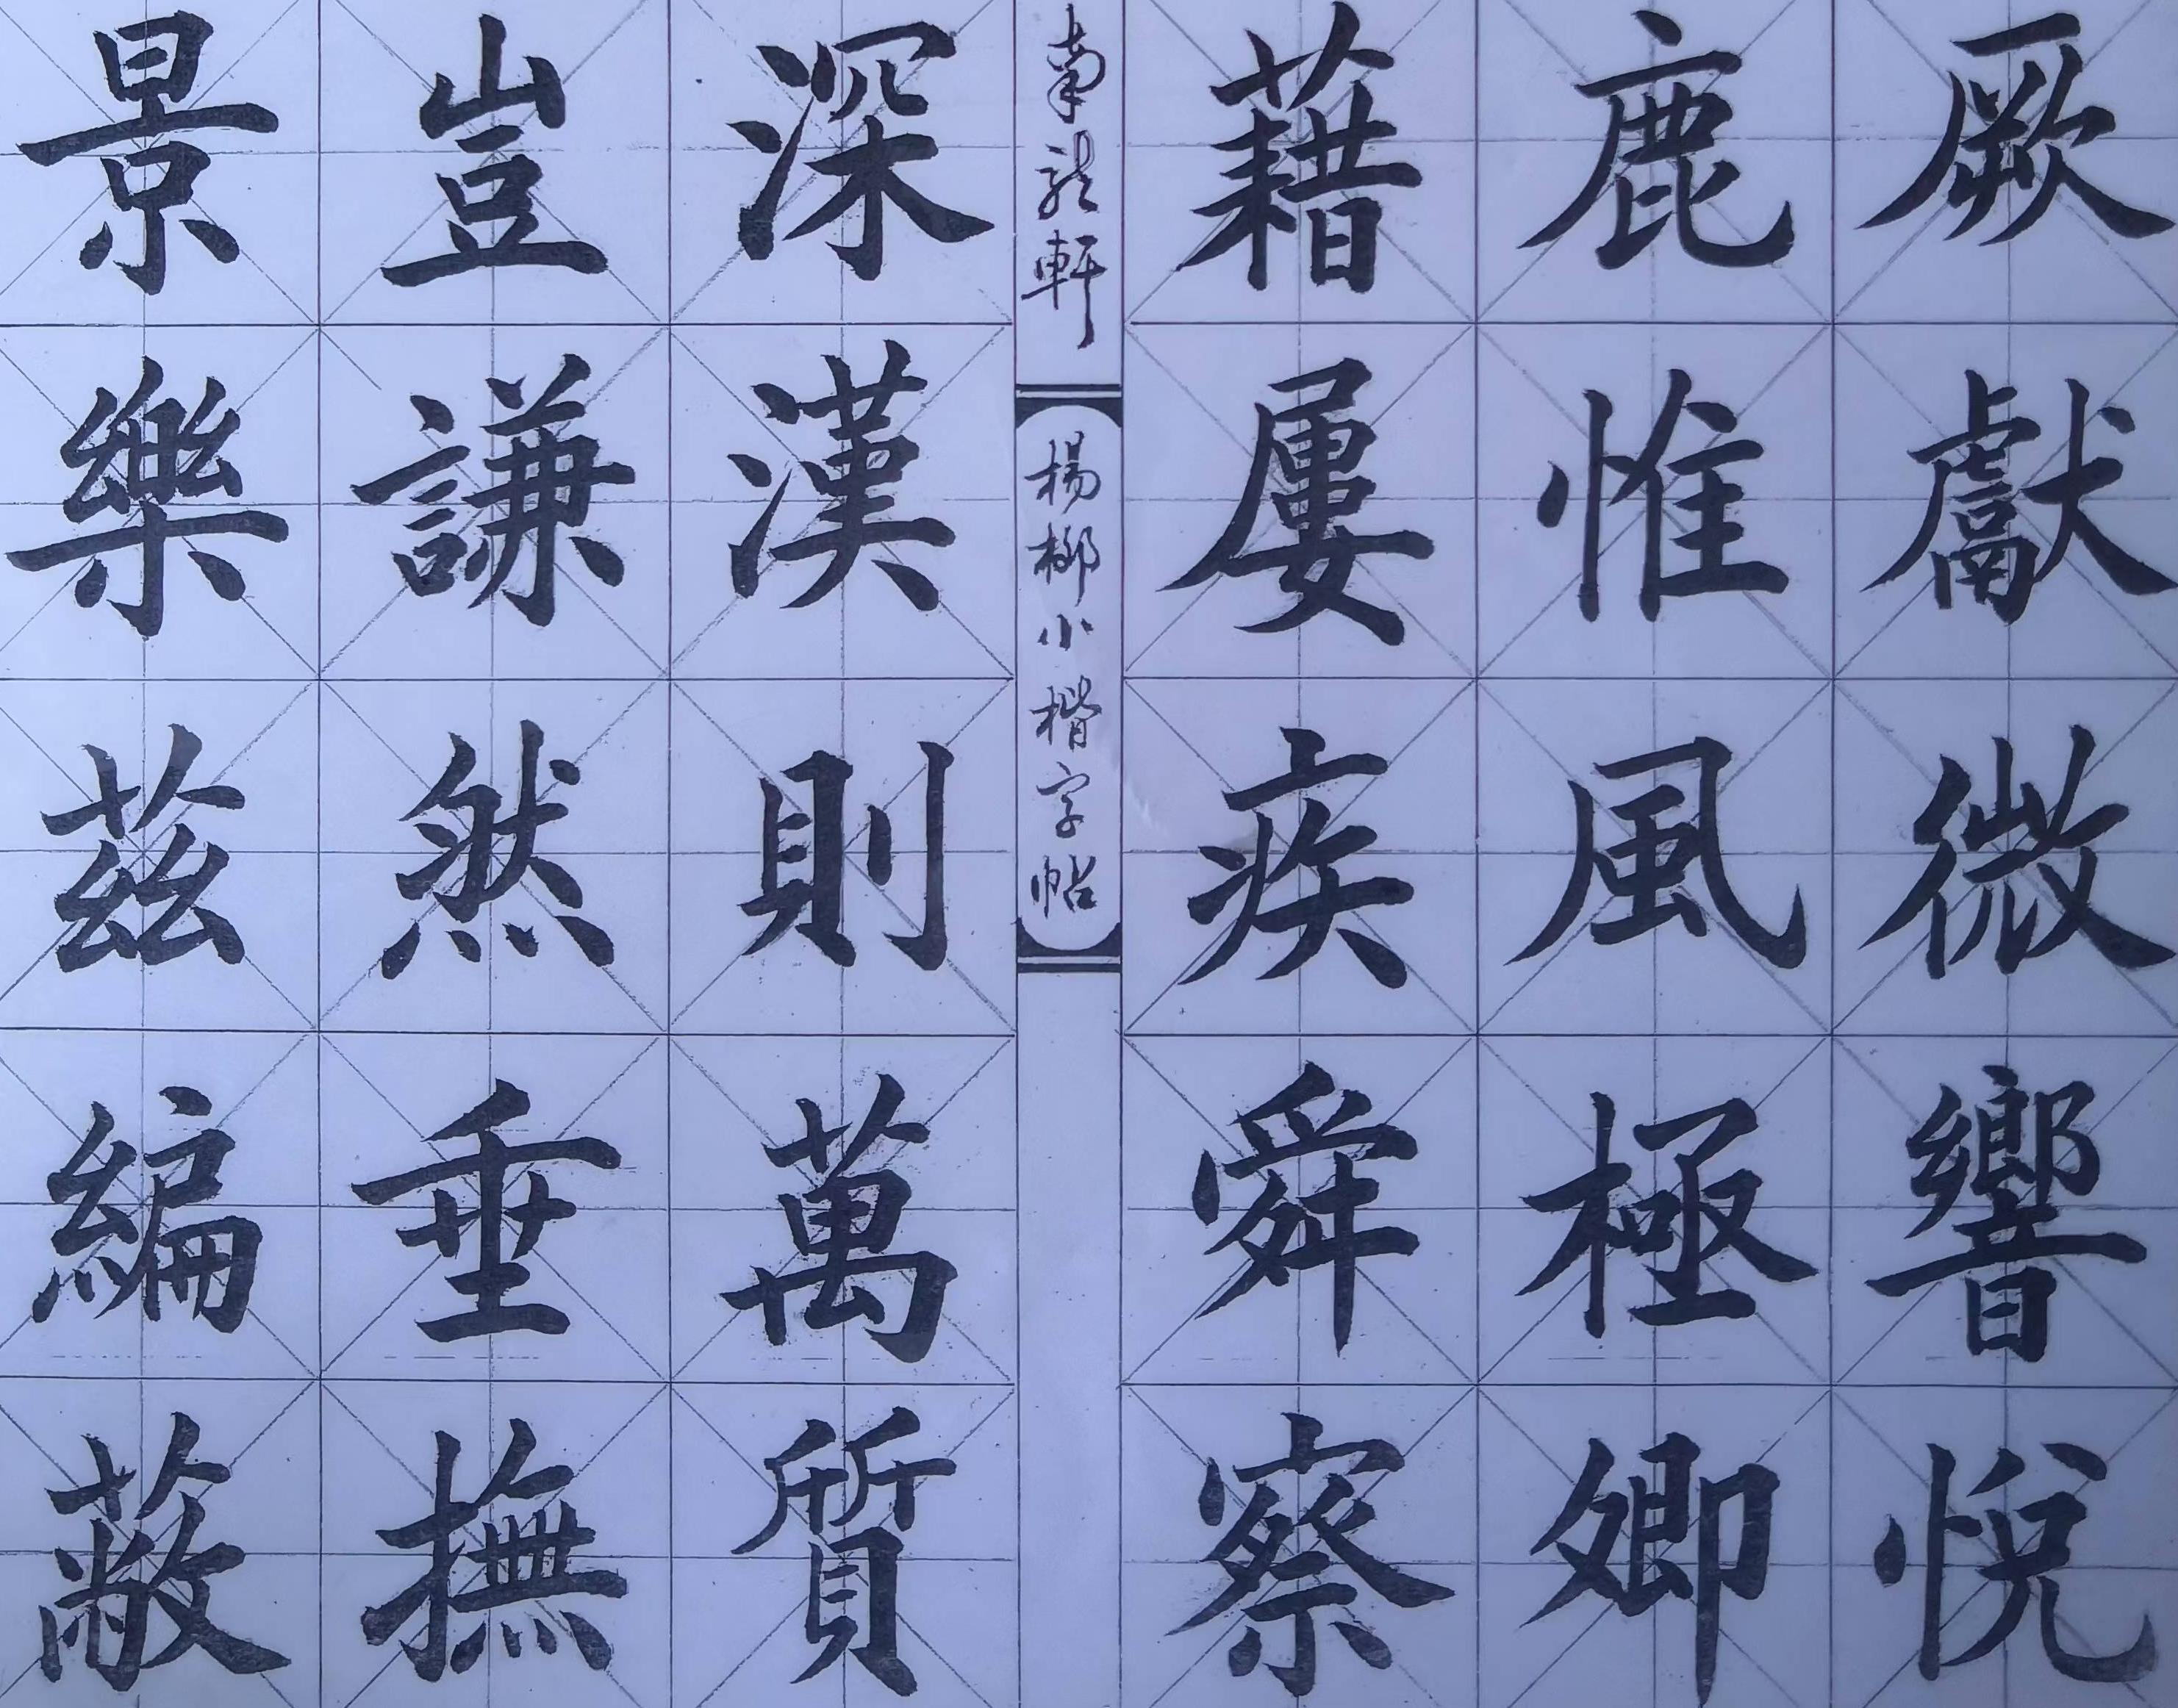 厥獻微響悅
鹿惟風極卿
藉屢疾舜察
南龍軒
楊柳小楷字帖
深漢則萬質
豈謙然垂撫
景樂茲編蔽